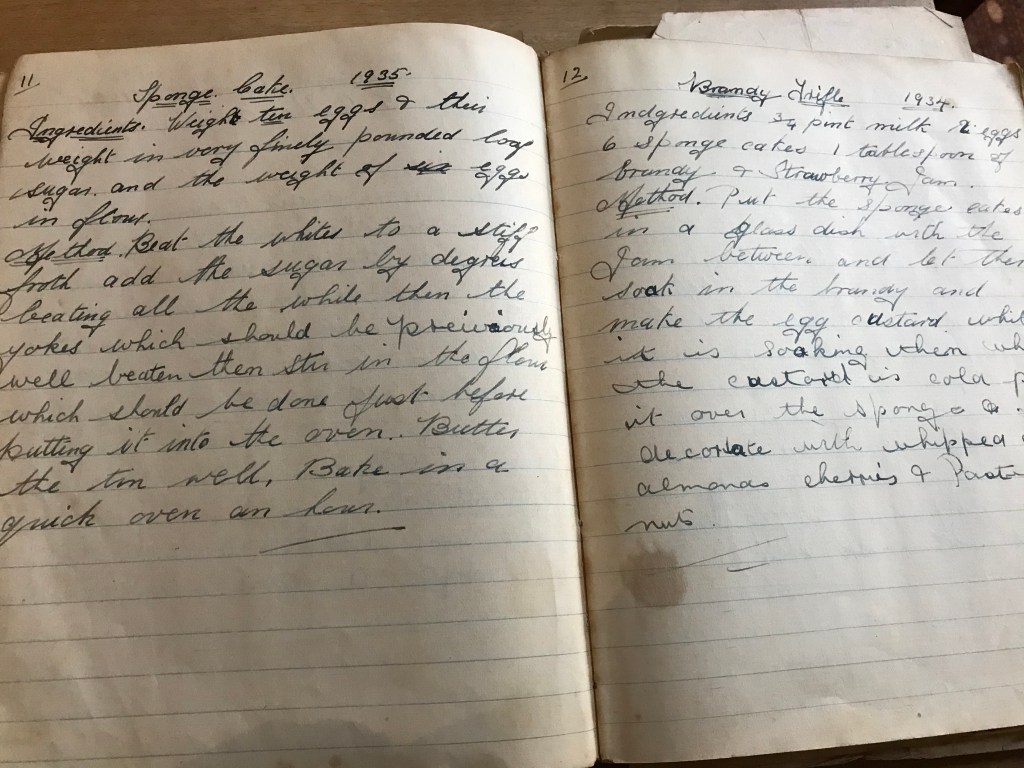 11
Sponge Cake. 1935.
Ingredients. Weigh ten eggs & their
weight in very finely pounded loaf
sugar. and the weight of six eggs
in flour.
Method. Beat the whites to a stiff
froth add the sugar by degrees
beating all the while then the
yokes which should be previously
well beaten then stir in the flour
which should be done just before
putting it into the oven. Butter
the tin well. Bake in a
quick oven an hour.
12
Brandy Trifle 1934.
Indgredients 3/4 pint milk 2 eggs
6 sponge cakes 1 tablespoon of
brandy & Strawberry Jam.
Method. Put the sponge cakes
in a glass dish with the
Jam between and let them
soak in the brandy and
make the egg custard while
it is soaking then wh
the custard is cold p
it over the sponge
decorate with whipped
almonds cherries &
nuts.